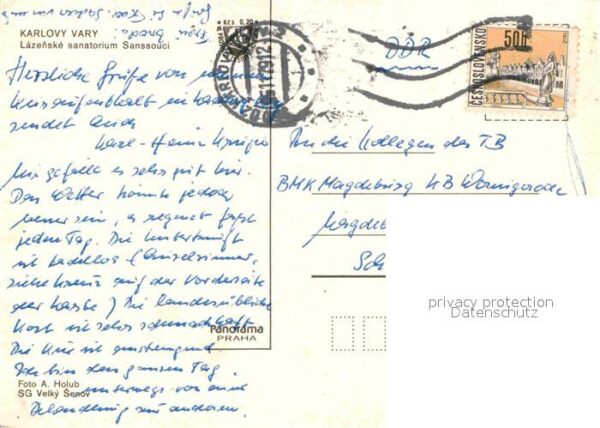 KARLOVY VARY
Lázeňské sanatorium Sanssouci
Kčs 0,20
ČESKOSLOVENSKO
50h
DDR
Herzliche Grüße von meinem
Kuraufenthalt in
sendet Euch
Karl-Heinz
Mir gefällt es sehr gut hier.
Das Wetter könnte jedoch
besser sein, es regnet fast
jeden Tag. Die Unterkunft
ist tadellos (Einzelzimmer,
siehe Kreuz auf der Vorderseite
der Karte) Die landesübliche
Kost ist sehr schmackhaft
Die Kur ist anstrengend
Ich bin den ganzen Tag
unterwegs von einer
Behandlung zur anderen.
An die Kollegen des TB
BMK Magdeburg KB Wernigerode
Magdeb
Sch
Panorama
PRAHA
Foto A. Holub
SG Velký Šenov
privacy protection
Datenschutz